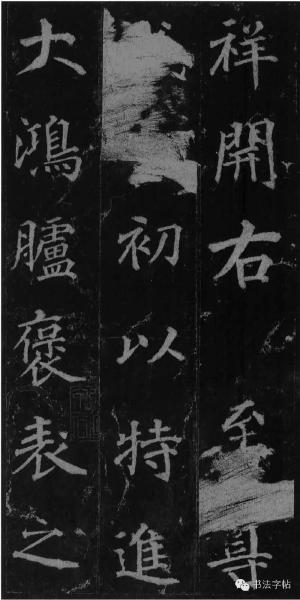 祥開右
至
初以特進
大鴻臚褒表之
书法字帖